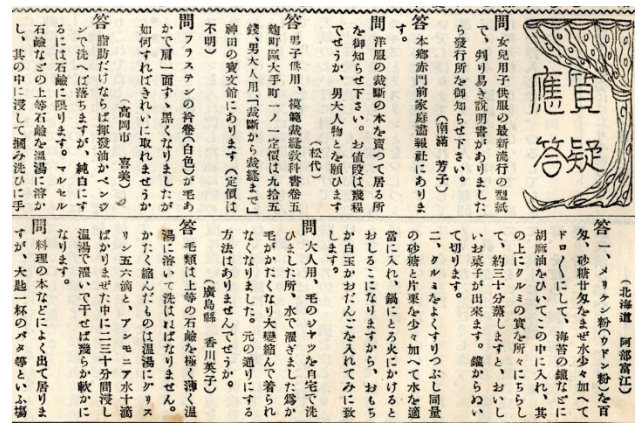 質疑
應答
問 女兒用子供服の最新流行の型紙
で、判り易き説明書がありました
ら發行所を御知らせ下さい。
(南滿 芳子)
答 本鄉赤門前家庭滿報社にありま
す。
問 洋服の裁斷の本を賣つて居る所
を御知らせ下さい。お値段は幾程
でせうか、男大人物とを願ひます
(松代)
答 男子供用、模範裁縫敎科書卷五
麴町區大手町一ノ一定價は九拾五
錢、男大人用「裁斷から裁縫まで」
神田の寶文館にあります(定價は
不明)
問 フラステンの衿卷(白色)が毛あ
かで肩一面すゝ黑くなりましたが
如何すればきれいに取れませうか
(高岡市 喜美)
答 脂肪だけならば揮發油かベンヂ
ンで洗へば落ちますが、純白にす
るには石鹼に限ります。マルセル
石鹼などの上等石鹼を溫湯に溶か
し、其の中に浸して摑み洗ひに手
(北海道 阿部富江)
答 一、メリケン粉(ウドン粉)を百
匁、砂糖廿匁をまぜ水少々加へて
ドロ〱にして、海苔の鑵などに
胡麻油をひいてこの中に入れ、其
の上にクルミの實を所々にちらし
て、約三十分蒸しますと、おいし
いお菓子が出來ます。鑵からぬい
て切ります。
二、クルミをよくすりつぶし同量
の砂糖と片栗を少々加へて水を適
當に入れ、鍋にとろ火にかけると
おしるこになりますから、おもち
か白玉かおだんごを入れてみに致
します。
問 大人用、毛のシャツを自宅で洗
ひました所、水で濯ぎました爲か
毛がかたくなり大變縮んで着られ
なくなりました。元の通りにする
方法はありませんでせうか。
(廣島縣 香川英子)
答 毛類は上等の石鹼を極く薄く溫
湯に溶いて洗はねばなりません。
かたく縮んだものは溫湯にグリス
リン五六滴と、アンモニア水十滴
ばかりまぜた中に二三十分間浸し
溫湯で濯いで干せば幾らか軟かに
なります。
問 料理の本などによく出て居りま
すが、大匙一杯のバタ等といふ場